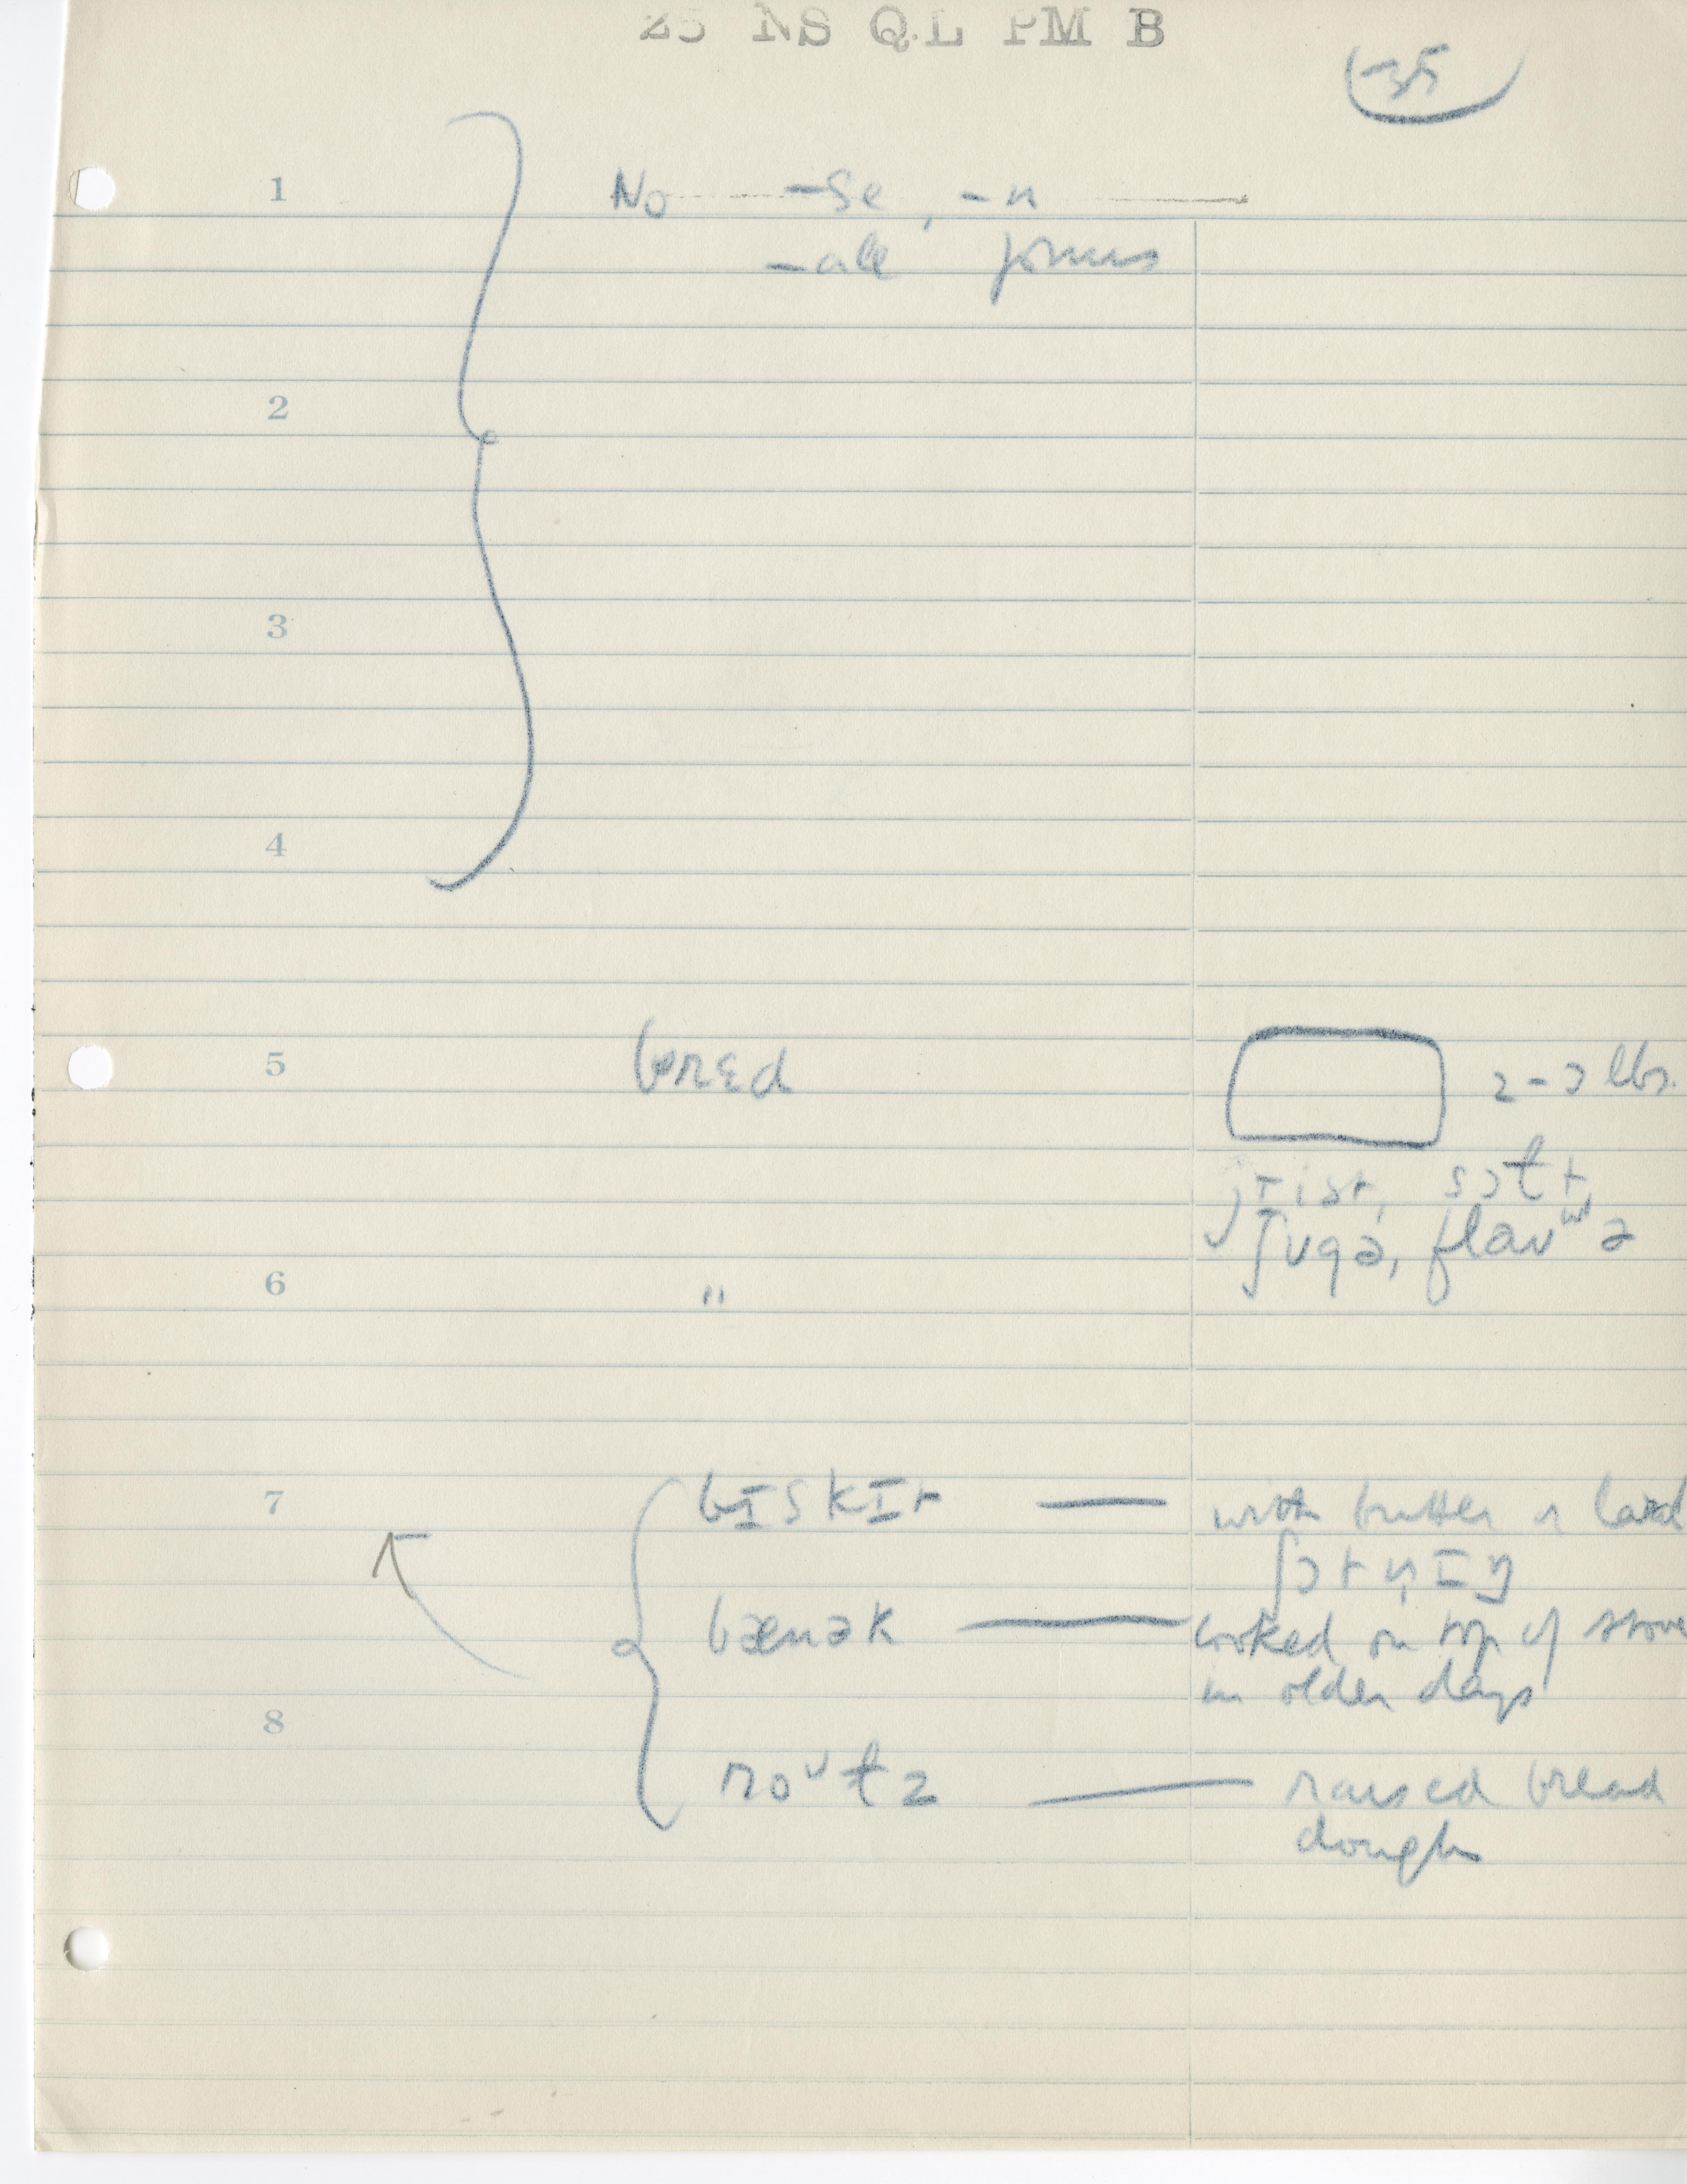 25 NS QL PM B
35
1 No -se, -n
-all forms
2
3
4
5 brɛd 2-3 lbs.
jɪist, sɔɫt,
ʃʊgə, flaʊʷə
6 "
7 bɪskɪt — with butter or lard
ʃɔtnɪŋ
bænək — cooked on top of stove
in older days
8
roʊɫz — raised bread
dough